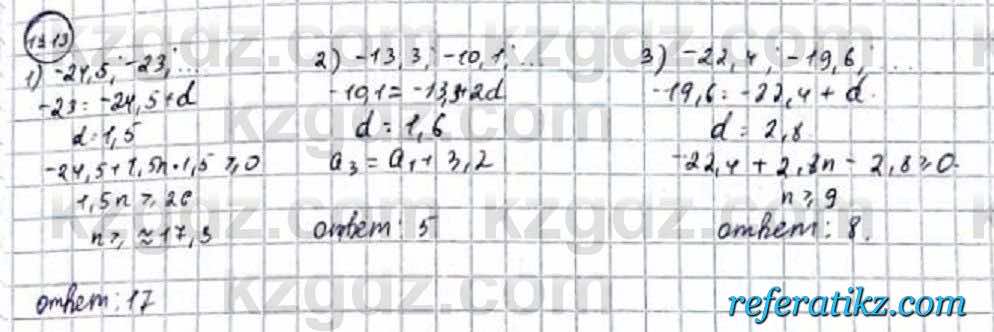 1713
1) -24,5; -23; ...
-23 = -24,5+d
d = 1,5
-24,5+1,5n·1,5 ⩾ 0
1,5n ⩾ 26
n ⩾ ≈17,3
ответ: 17
2) -13,3; -10,1; ...
-10,1 = -13,3+2d
d = 1,6
a₃ = a₁+ 3,2
ответ: 5
3) -22,4; -19,6; ...
-19,6 = -22,4 + d.
d = 2,8.
-22,4 + 2,8n - 2,8 ⩾ 0.
n ⩾ 9
ответ: 8.
kzgdz.com
referatikz.com